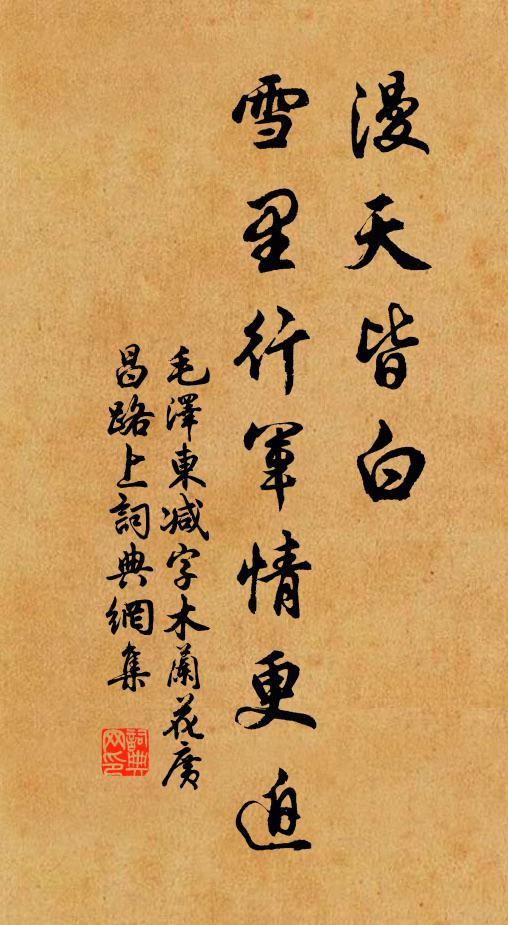 漫天皆白
雪里行軍情更迫
毛澤東减字木蘭花廣
昌路上詞典網集
詞典
网印